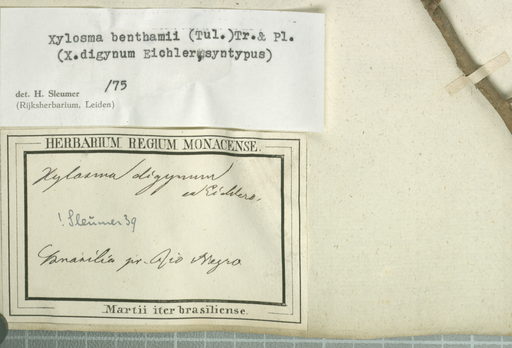 Xylosma benthamii (Tul.)Tr.& Pl.
(X.digynum Eichler,syntypus)
det. H. Sleumer /75
(Rijksherbarium, Leiden)
HERBARIUM REGIUM MONACENSE.
Xylosma digynum
! Sleumer 39
pr. Rio Negro
Martii iter brasiliense.